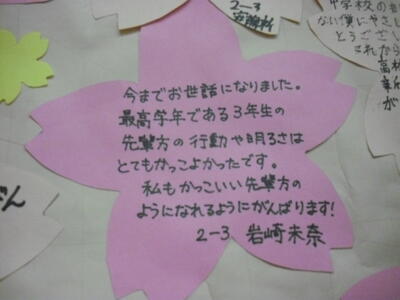 今までお世話になりました。
最高学年である3年生の
先輩方の行動や明るさは
とてもかっこよかったです。
私もかっこいい先輩方の
ようになれるようにがんばります!
2-3 岩崎未奈
2-3
中学校の
ない僕にやさし
とうござい
これから
高校
が